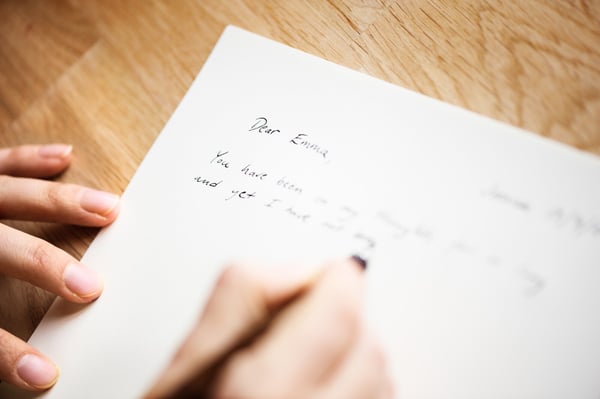 Dear Emma,
You have been in my thoughts for a long
and yet I have not